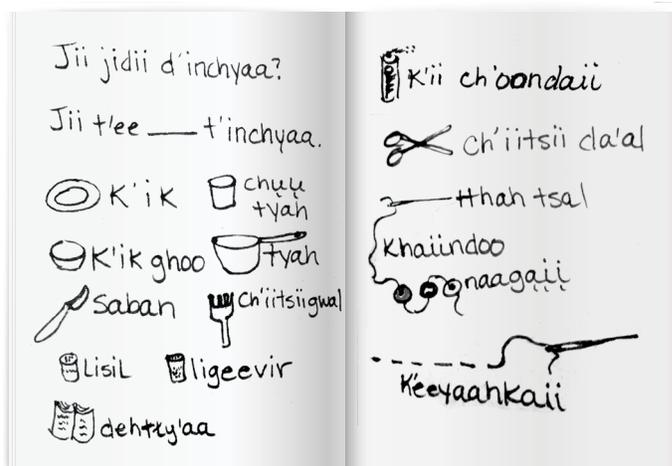 Jii jidii d'inchyaa?
Jii t'ee ____ t'inchyaa.
K'ik
chųų
tyąh
K'ik ghoo
tyąh
Saban
ch'iitsiigwal
Lisil
ligeevir
dehtły'aa
K'ii ch'oondaii
ch'iitsii da'al
tthah tsal
Khaiindoo
naagąįį
K'eeyaahkaii